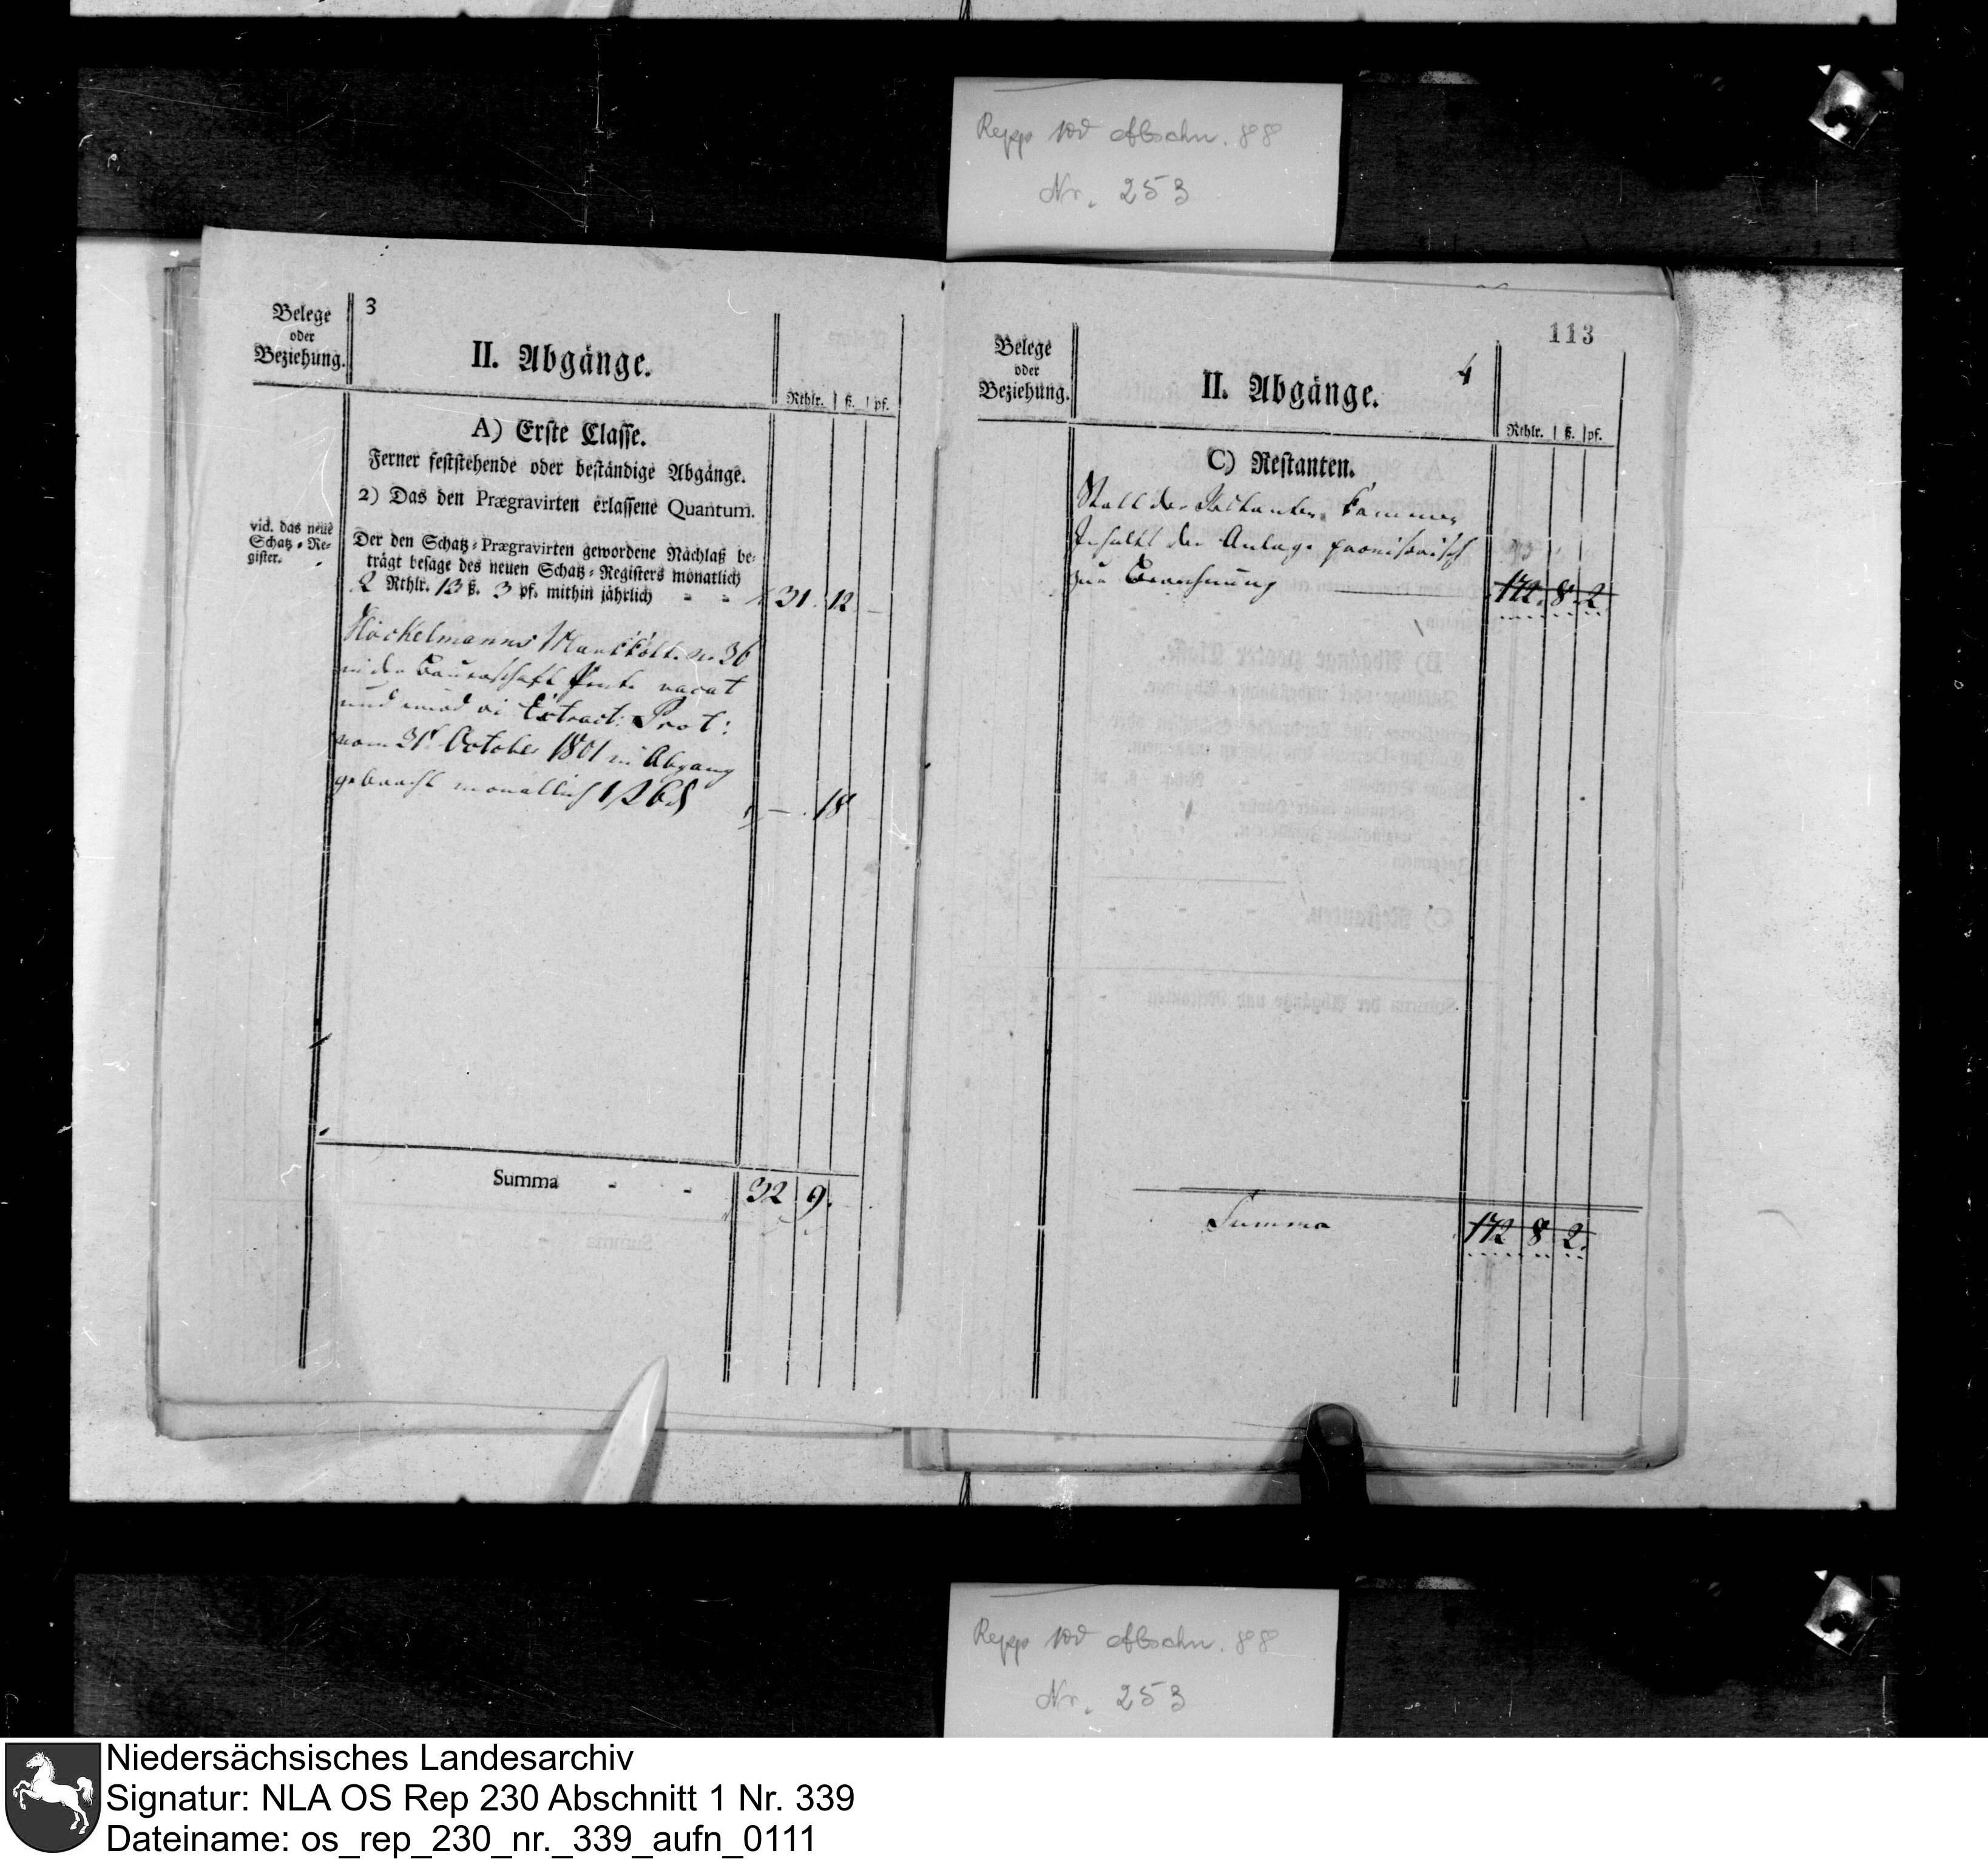 Repp 100 Abschn. 88
Nr. 253
Belege
oder
Beziehung.
3
II. Abgänge.
Rthlr. ß. pf.
A) Erste Classe.
Ferner feststehende oder beständige Abgänge.
2) Das den Prægravirten erlassene Quantum.
vid. das neue
Schatz-Re-
gister.
Der den Schatz-Prægravirten gewordene Nachlaß be-
trägt besage des neuen Schatz-Registers monatlich
2 Rthlr. 13 ß. 3 pf. mithin jährlich - - 31. 12 -
Höckelmanns Markkött. N. 36
in der Bauerschaft Pente vacat
und wird vi Extract: Prot:
vom 31t October 1801 in Abgang
gebracht monatlich 1 ß 6 d - 18
Summa - - 32 9.
113
Belege
oder
Beziehung.
4
II. Abgänge.
Rthlr. ß. pf.
C) Restanten.
Statt der Restanten kommen
Inhalts der Anlage provisorisch
zur Berechnung 172. 8. 2
Summa 172 8 2.
Repp 100 Abschn. 88
Nr. 253
Niedersächsisches Landesarchiv
Signatur: NLA OS Rep 230 Abschnitt 1 Nr. 339
Dateiname: os_rep_230_nr._339_aufn_0111